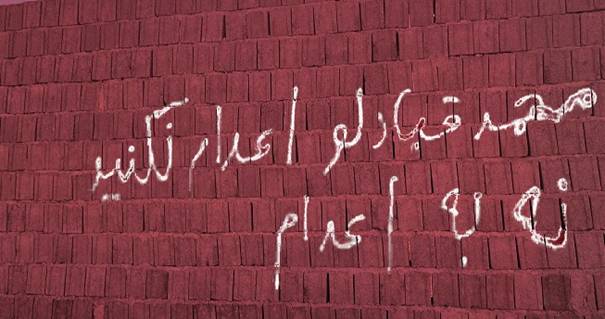 محمد قبادلو اعدام نکنید
نه به اعدام